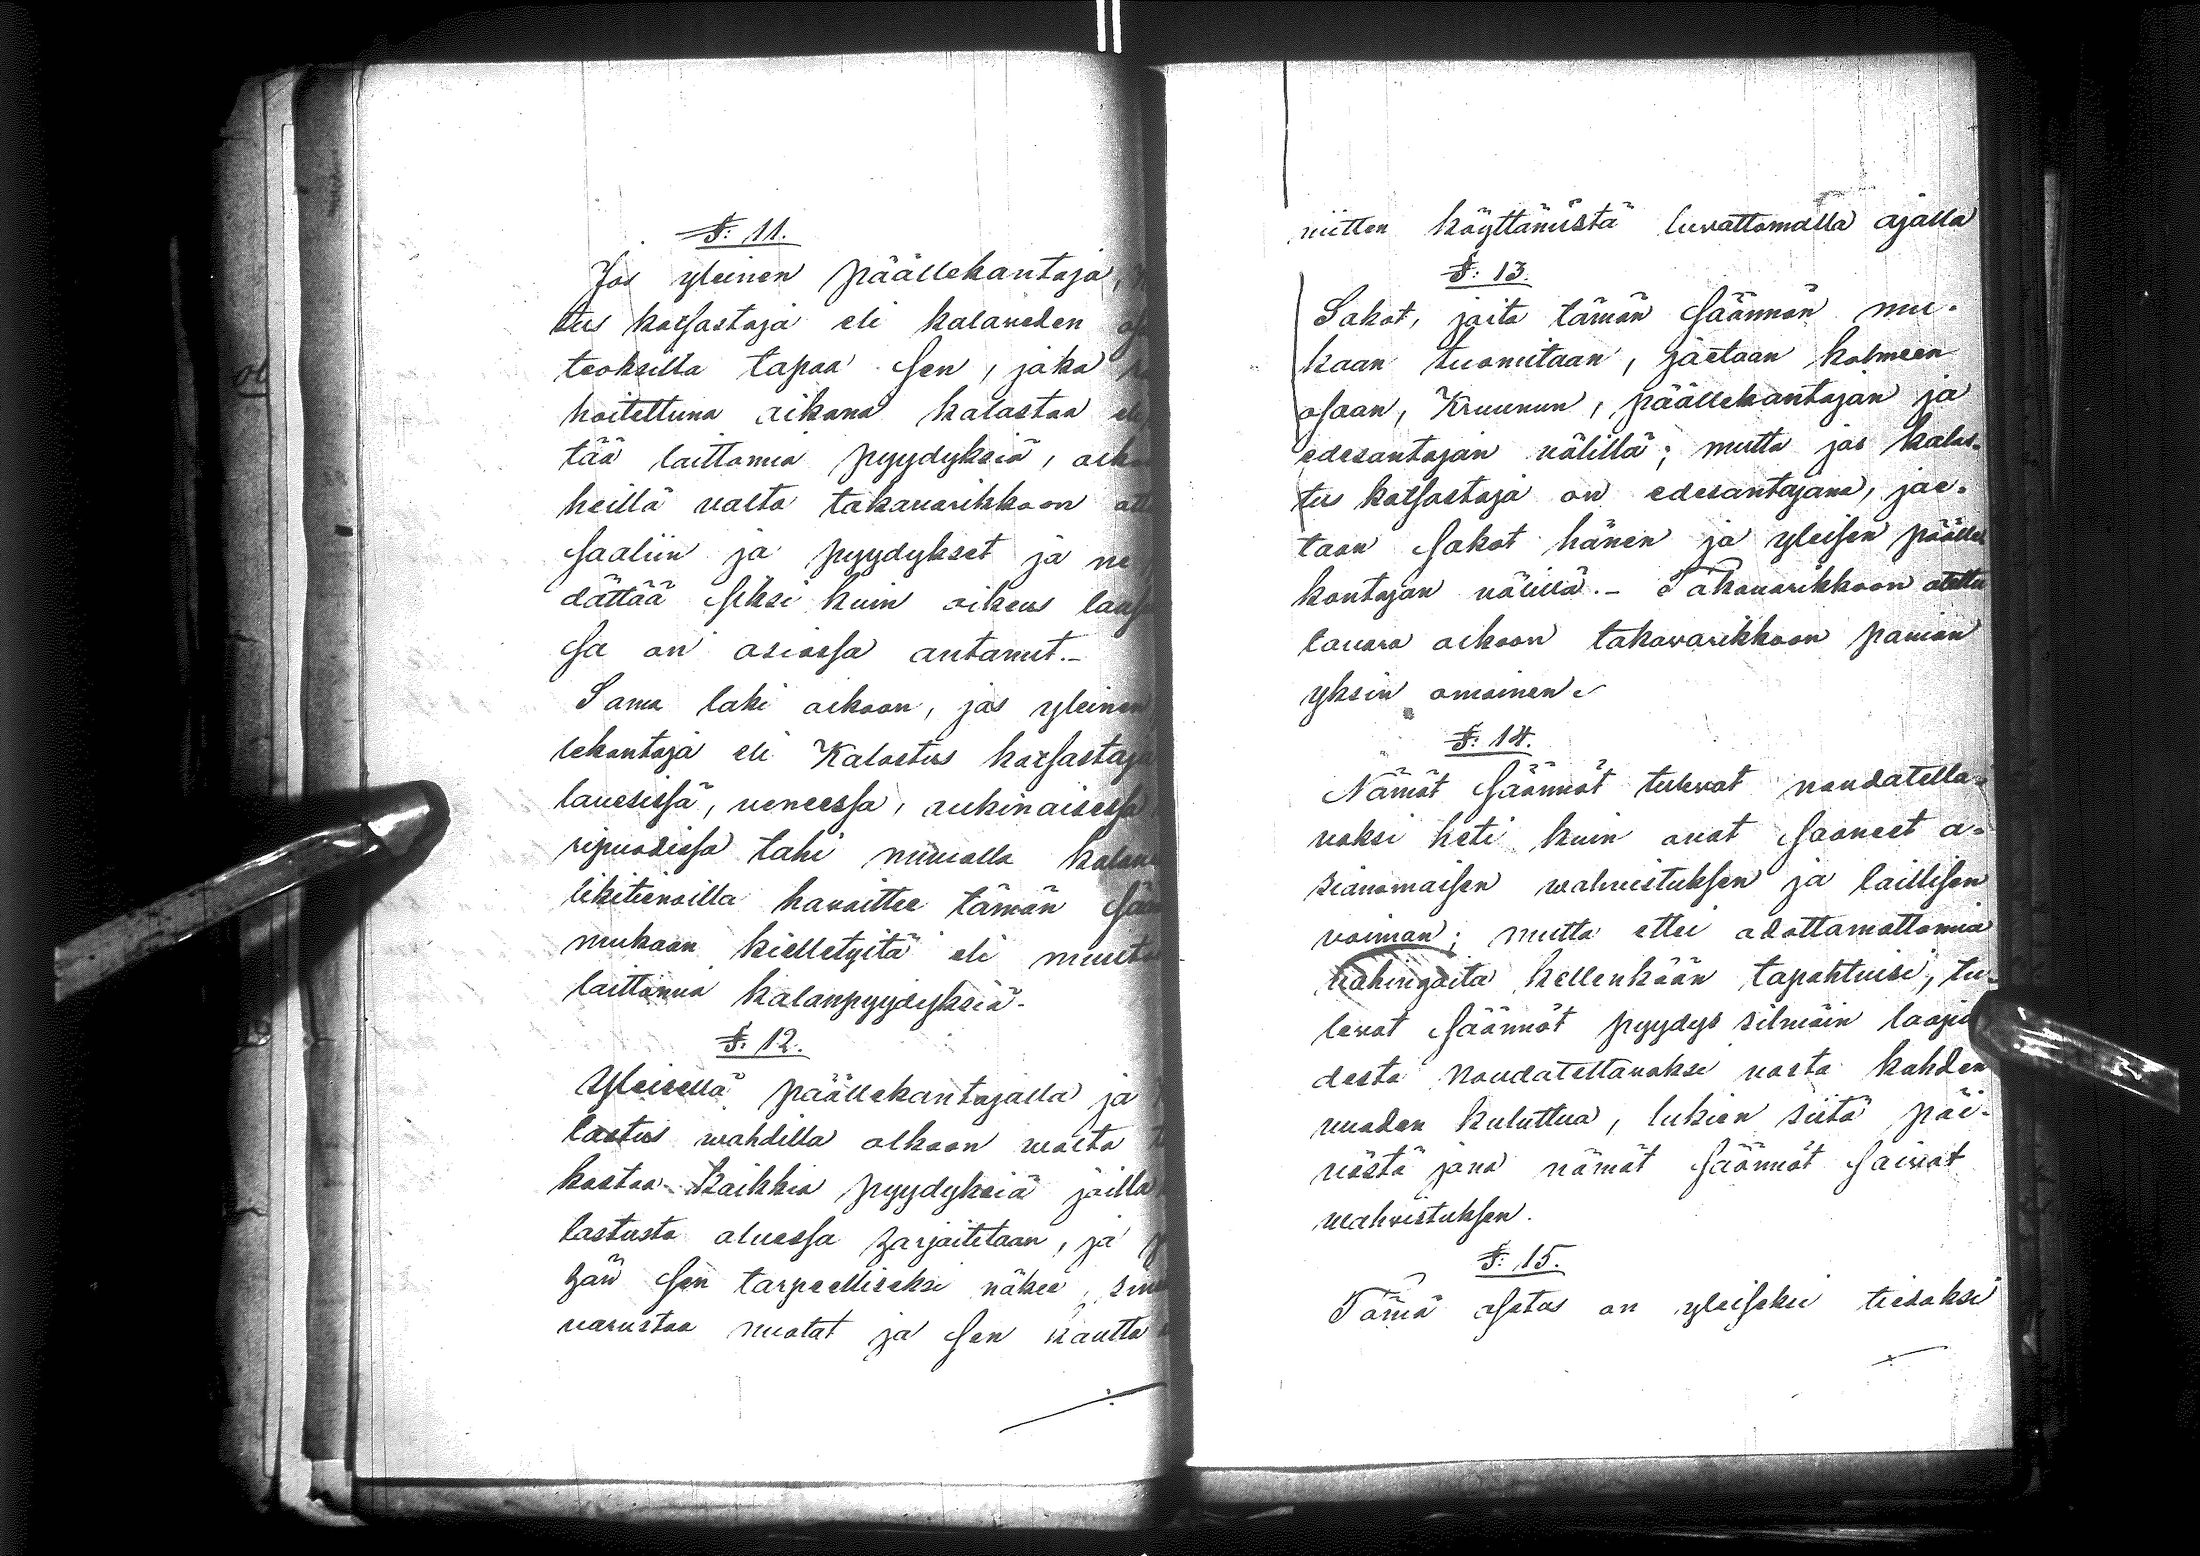 §: 11.
Jos yleinen päällekantaja,
tus katsastaja eli kalaveden
teoksilla tapaa sen, joka
hoitettuna aikana kalastaa
tää laittomia pyydyksiä,
heillä valta takavarikkoon
saaliin ja pyydykset ja ne
dättää siksi kuin oikeus
sa on asiassa antanut.-
Sama laki olkoon, jos yleinen
lekantaja eli Kalastus katsastaja
venessä, aukinaisessa
tahi muualla
likitienoilla havaittee tämän
mukaan kielletyitä eli
laittomia kalanpyydyksiä.
§: 12.
Yleisellä päällekantajalla ja
lastus wahdilla olkoon walta
kastaa kaikkia pyydyksiä joilla
lastusta aluessa harjoitetaan, ja
hän sen tarpeelliseksi näkee,
varustaa nuotat ja sen kautta
niitten käyttämistä luvattomalla ajalla
§: 13.
Sakot, joita tämän säännön mu-
kaan tuomitaan, jaetaan kolmeen
osaan, Kruunun, päällekantajan ja
edesantajan välillä; mutta jos kalas-
tus katsastaja on edesantajana, jae-
taan sakot hänen ja yleisen päälle
kantajan välillä.- Takavarikkoon otettu
tavara olkoon takavarikkoon panian
yksin omainen.
§: 14.
Nämät säännöt tulevat noudatetta-
vaksi heti kuin ovat saaneet a-
sianomaisen wahvistuksen ja laillisen
voiman; mutta ettei odottamattomia
vahingoita kellenkään tapahtuisi, tu-
levat säännöt pyydys silmäin laaju
desta noudatettavaksi vasta kahden
vuoden kuluttua, lukien siitä päi-
västä jona nämät säännöt saivat
wahvistuksen.
§: 15.
Tämä asetus on yleiseksi tiedoksi